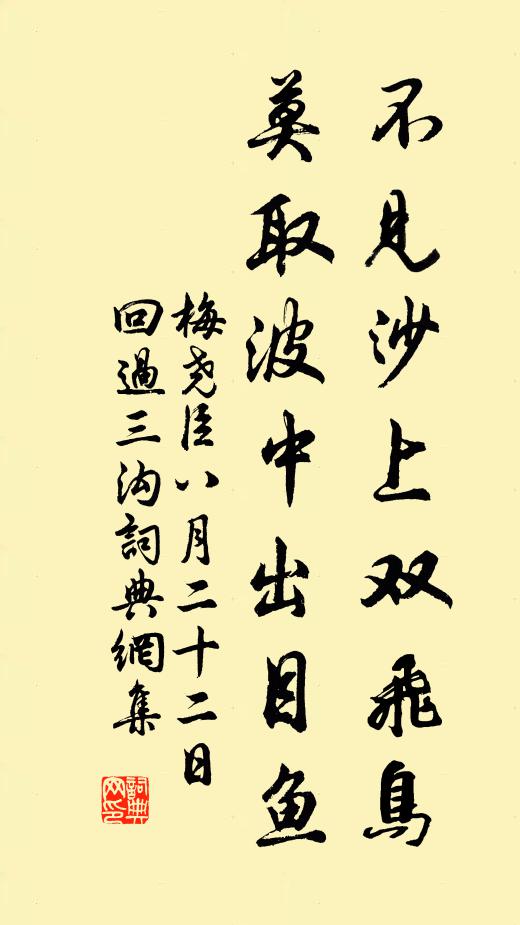 不见沙上双飞鸟
莫取波中出目鱼
梅尧臣八月二十二日
回過三沟詞典網集
詞典
网印